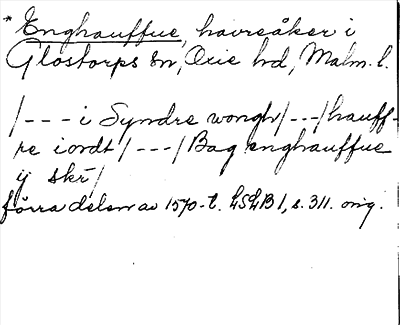 * Enghauffue, havreåker i
Glostorps sn, Oxie hd, Malm. l.
/--- i Syndre wongh/---/hauff-
re iordt/---/Bag enghauffue
ij skr/
förra delen av 1570-t. LSLB 1, s. 311. orig.